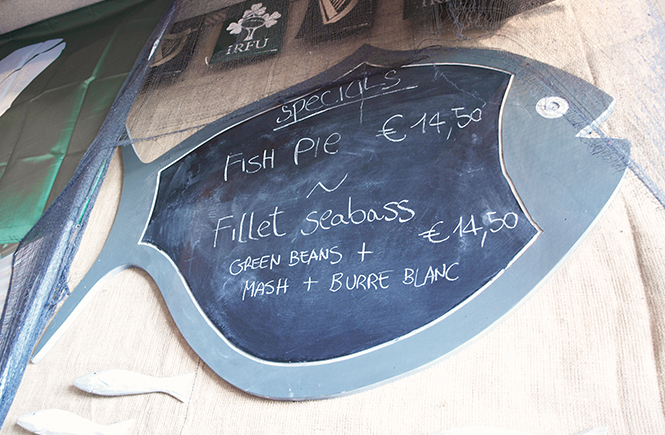 IRFU
SPECIALS
FISH PIE € 14,50
~
Fillet seabass
€ 14,50
GREEN BEANS +
MASH + BURRE BLANC